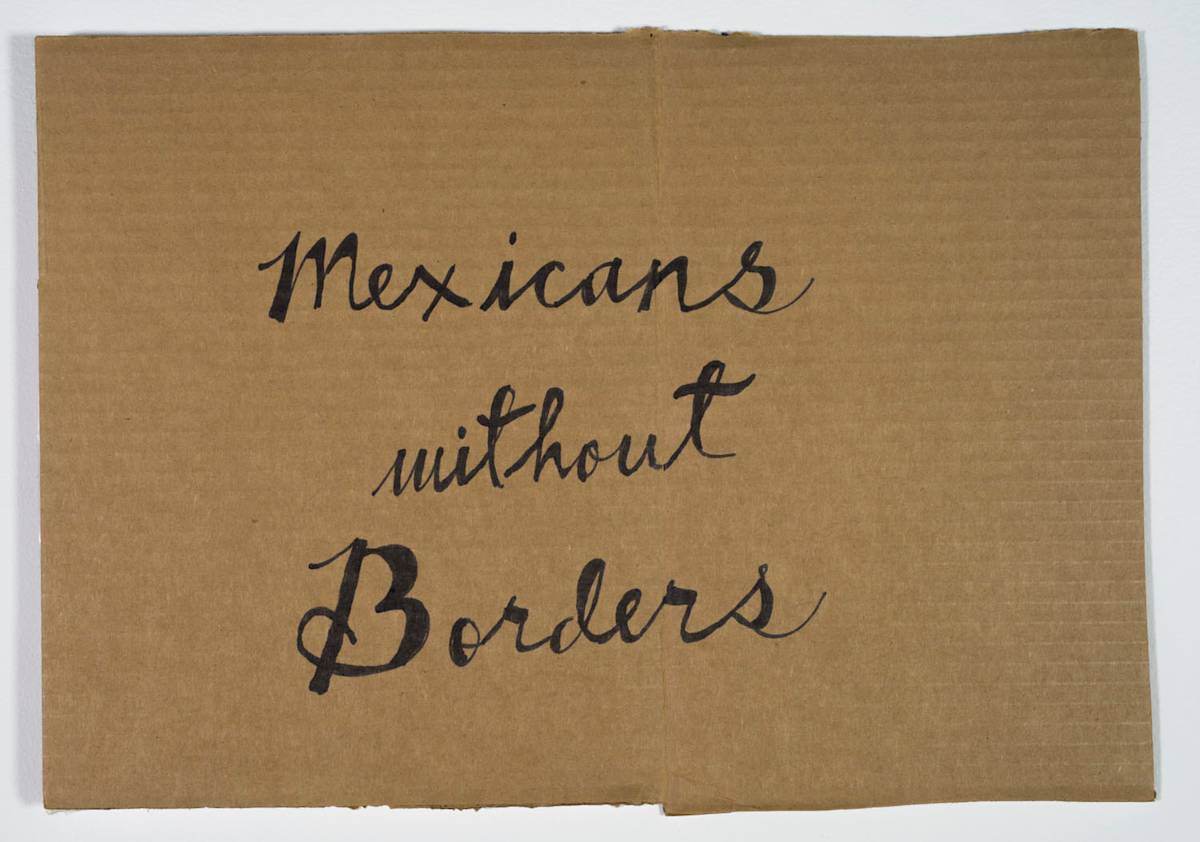 Mexicans
without
Borders